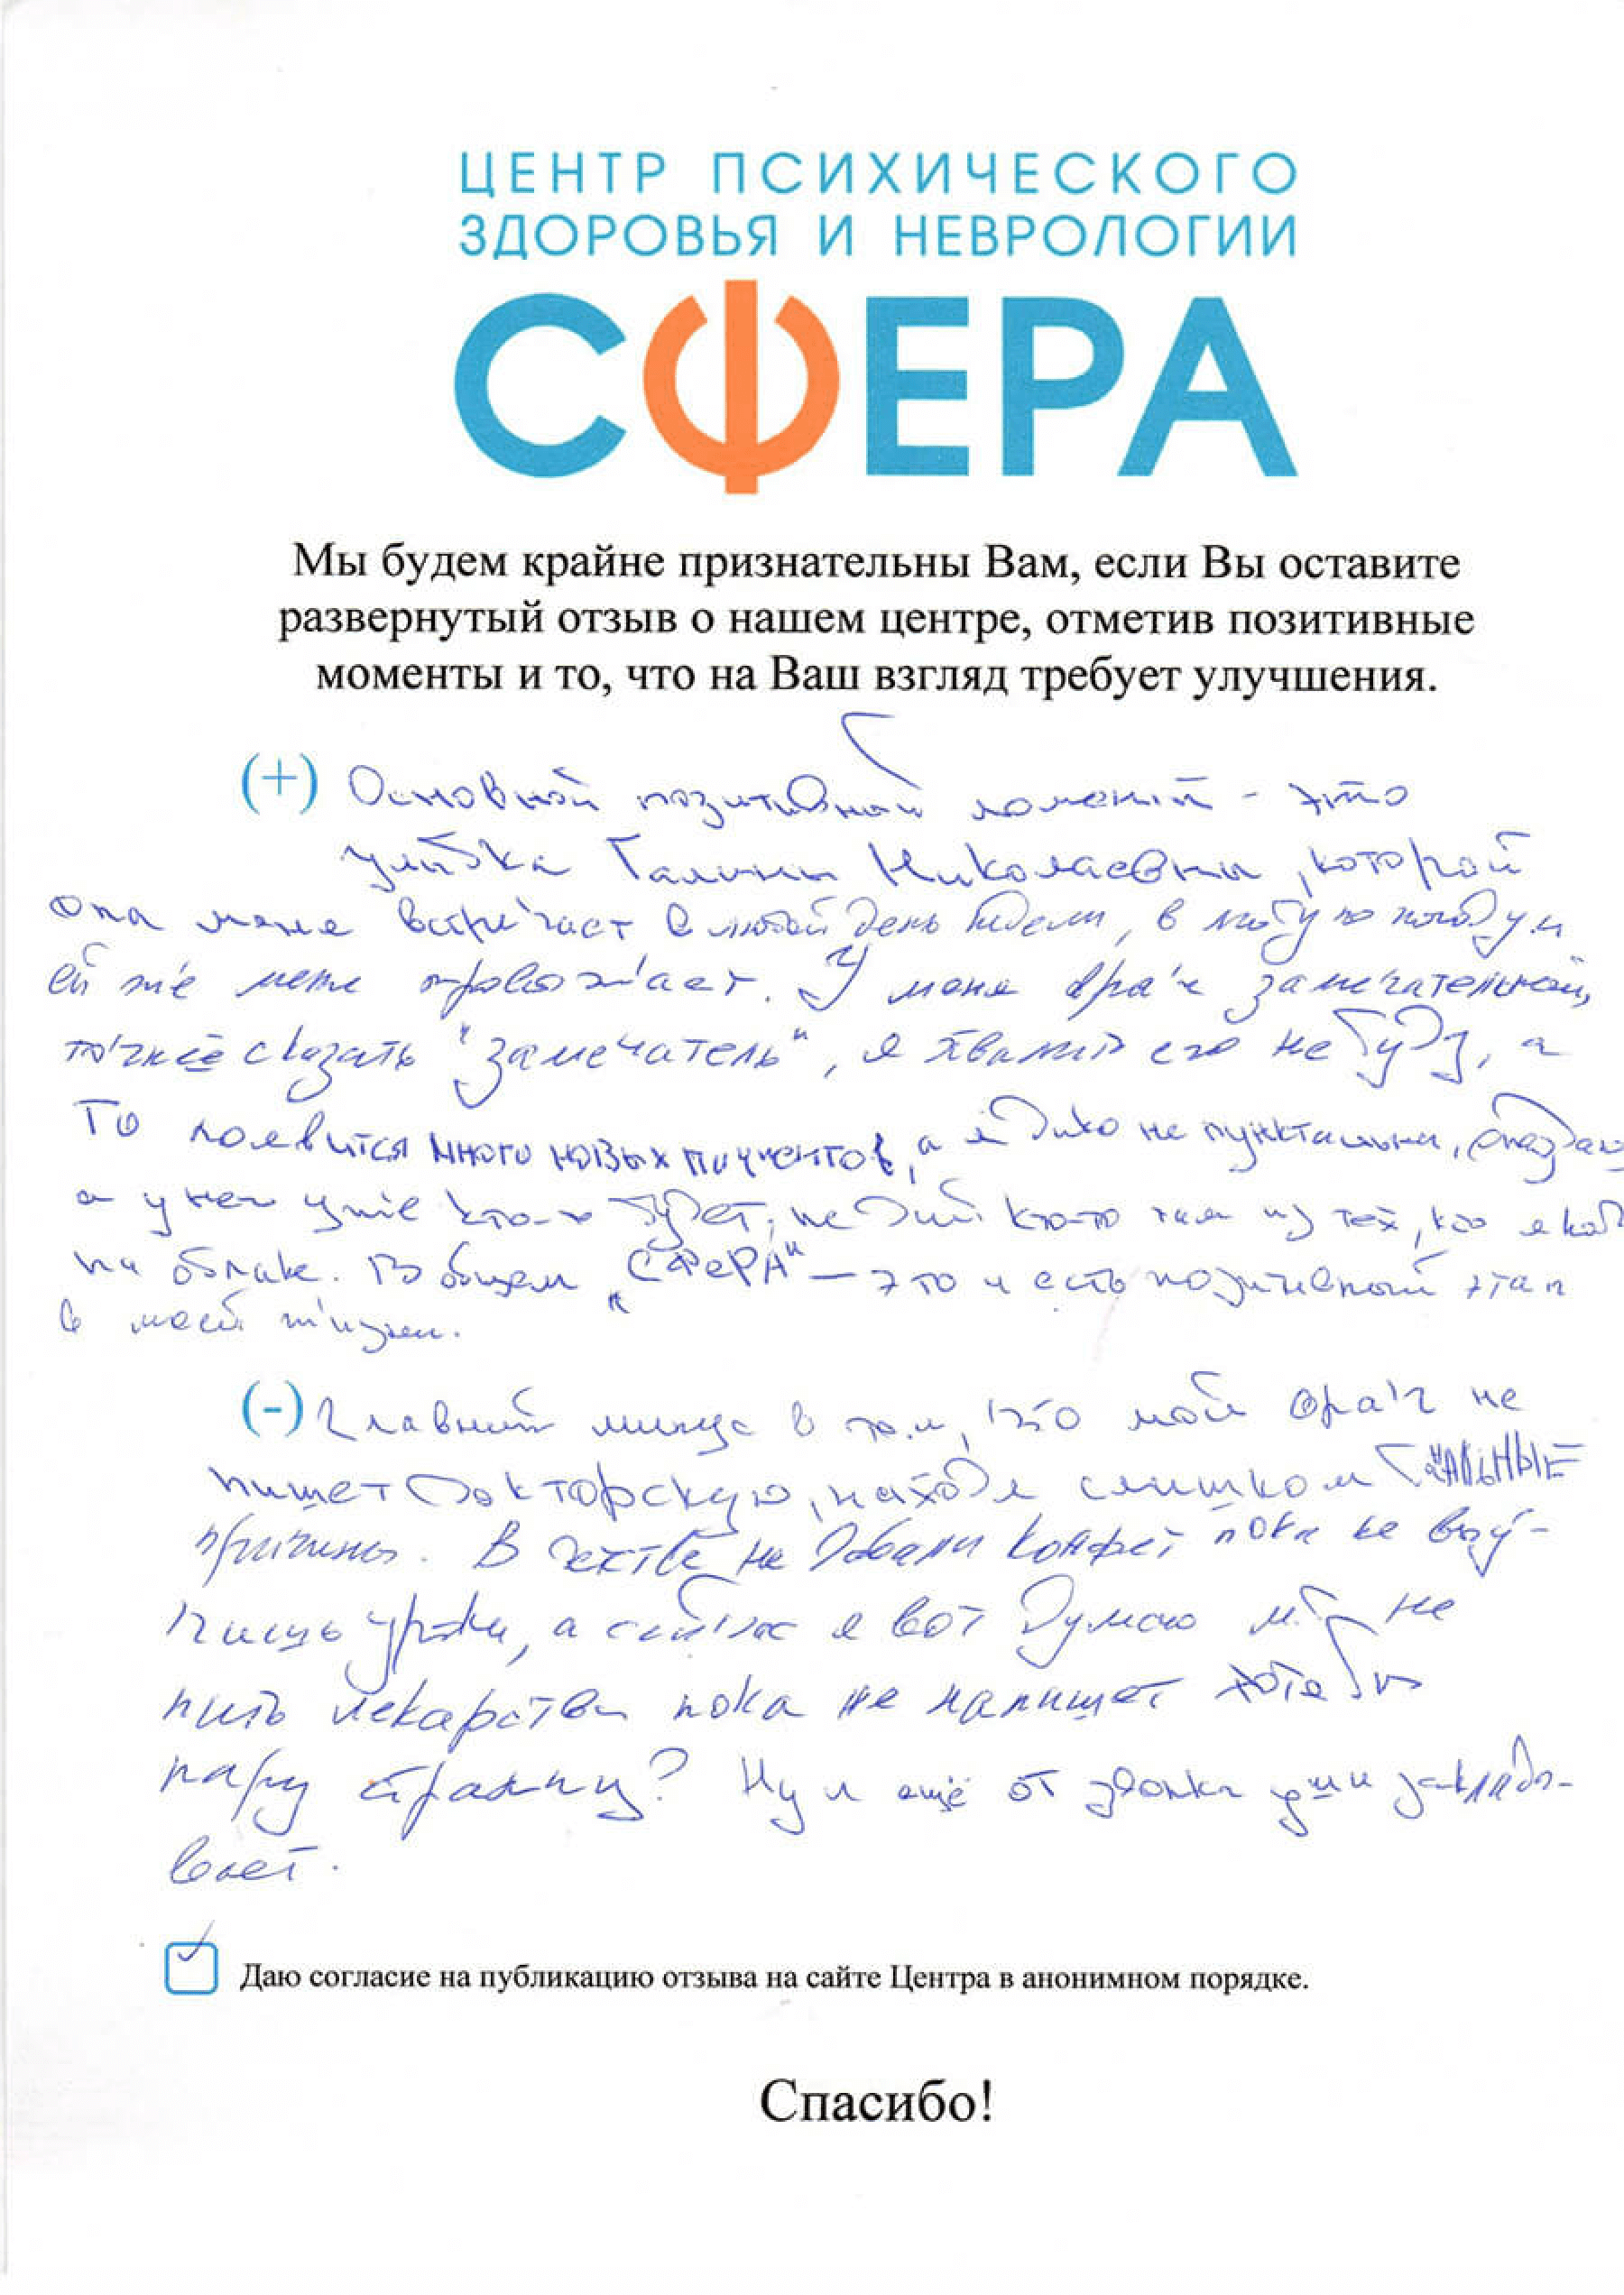 ЦЕНТР ПСИХИЧЕСКОГО
ЗДОРОВЬЯ И НЕВРОЛОГИИ
СФЕРА
Мы будем крайне признательны Вам, если Вы оставите
развернутый отзыв о нашем центре, отметив позитивные
моменты и то, что на Ваш взгляд требует улучшения.
(+) Основной позитивный момент - это
улыбка Галины Николаевны, которой
она меня встречает в любой день недели, в любую погоду и
ей же меня провожает. У меня врач замечательный,
точнее сказать "замечатель", я хвалить его не буду, а
то появится много новых пациентов, а я дико не пунктальна, опаздаю
а у него уже кто-то будет, не дай кто-то там из тех, кто
на облаке. В общем "СФЕРА" — это и есть позитивный этап
в моей жизни.
(-) Главный минус в том, что мой врач не
пишет докторскую, находя слишком БАНАЛЬНЫЕ
причины. В детстве не давали конфет пока не выу-
чишь уроки, а сейчас я вот думаю м.б не
пить лекарства пока не напишет хотя бы
пару страниц? Ну и ещё от звонка уши заклады-
вает.
Даю согласие на публикацию отзыва на сайте Центра в анонимном порядке.
Спасибо!